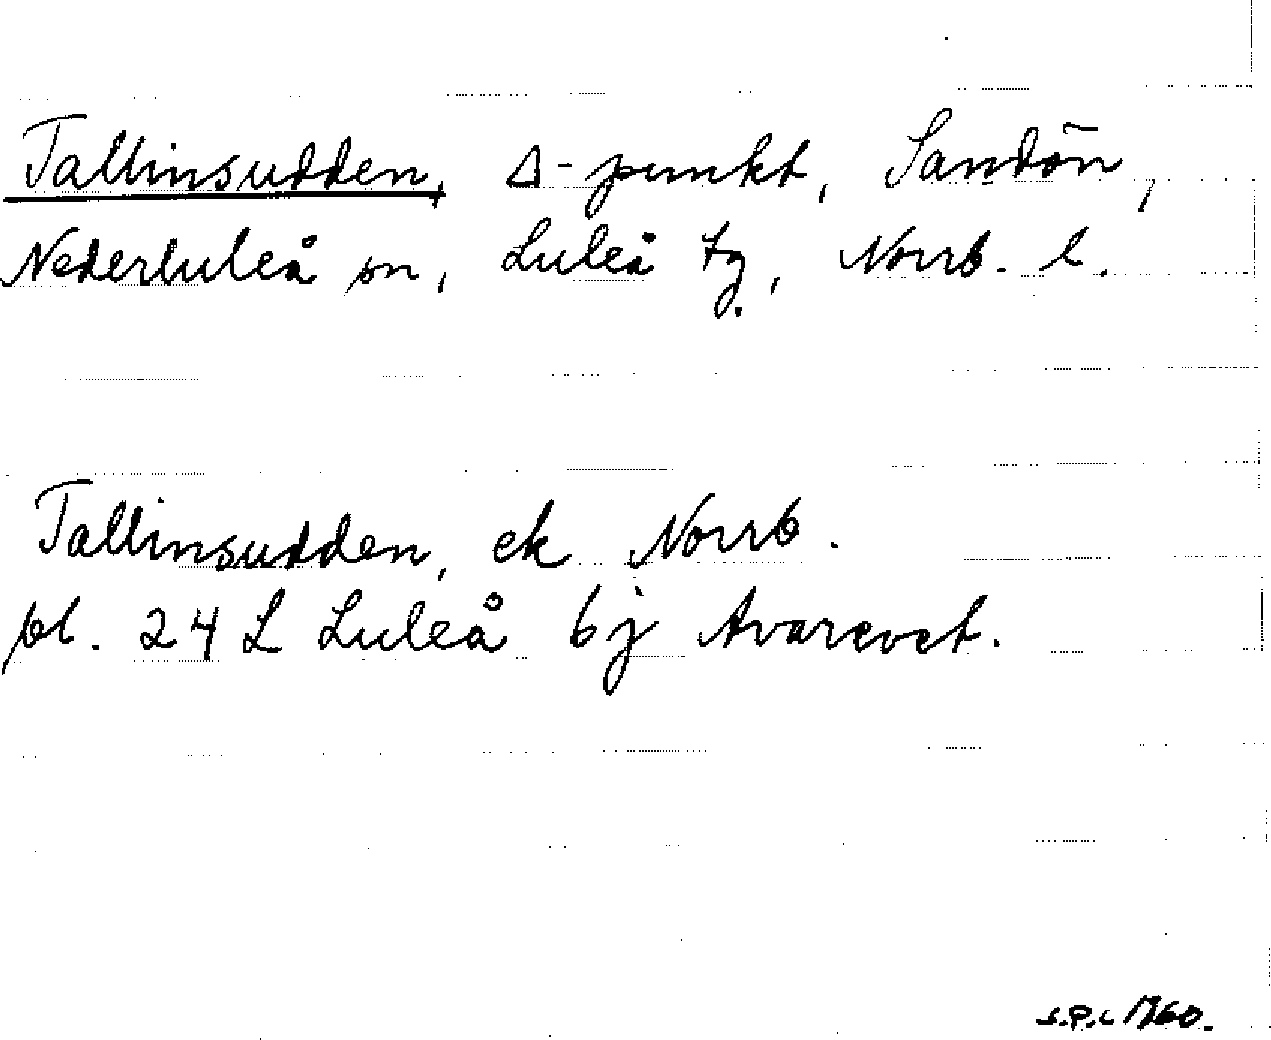 Tallinsudden, Δ-punkt, Sandön,
Nederluleå sn, Luleå tg, Norrb. l.
Tallinsudden, ek Norrb.
bl. 24 L Luleå 6j Avarevet.
1960.